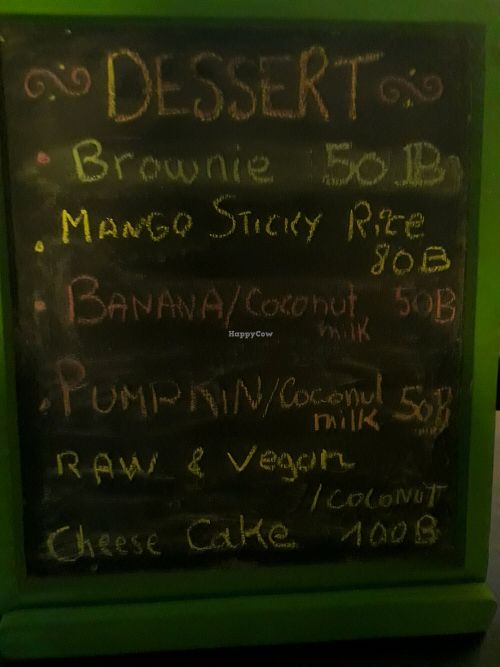 DESSERT
Brownie 50B
MANGO STICKY Rice
80B
BANANA/Coconut 50B
milk
HappyCow
PUMPKIN/Coconut 50B
milk
RAW & Vegan
/COCONUT
Cheese Cake 100B